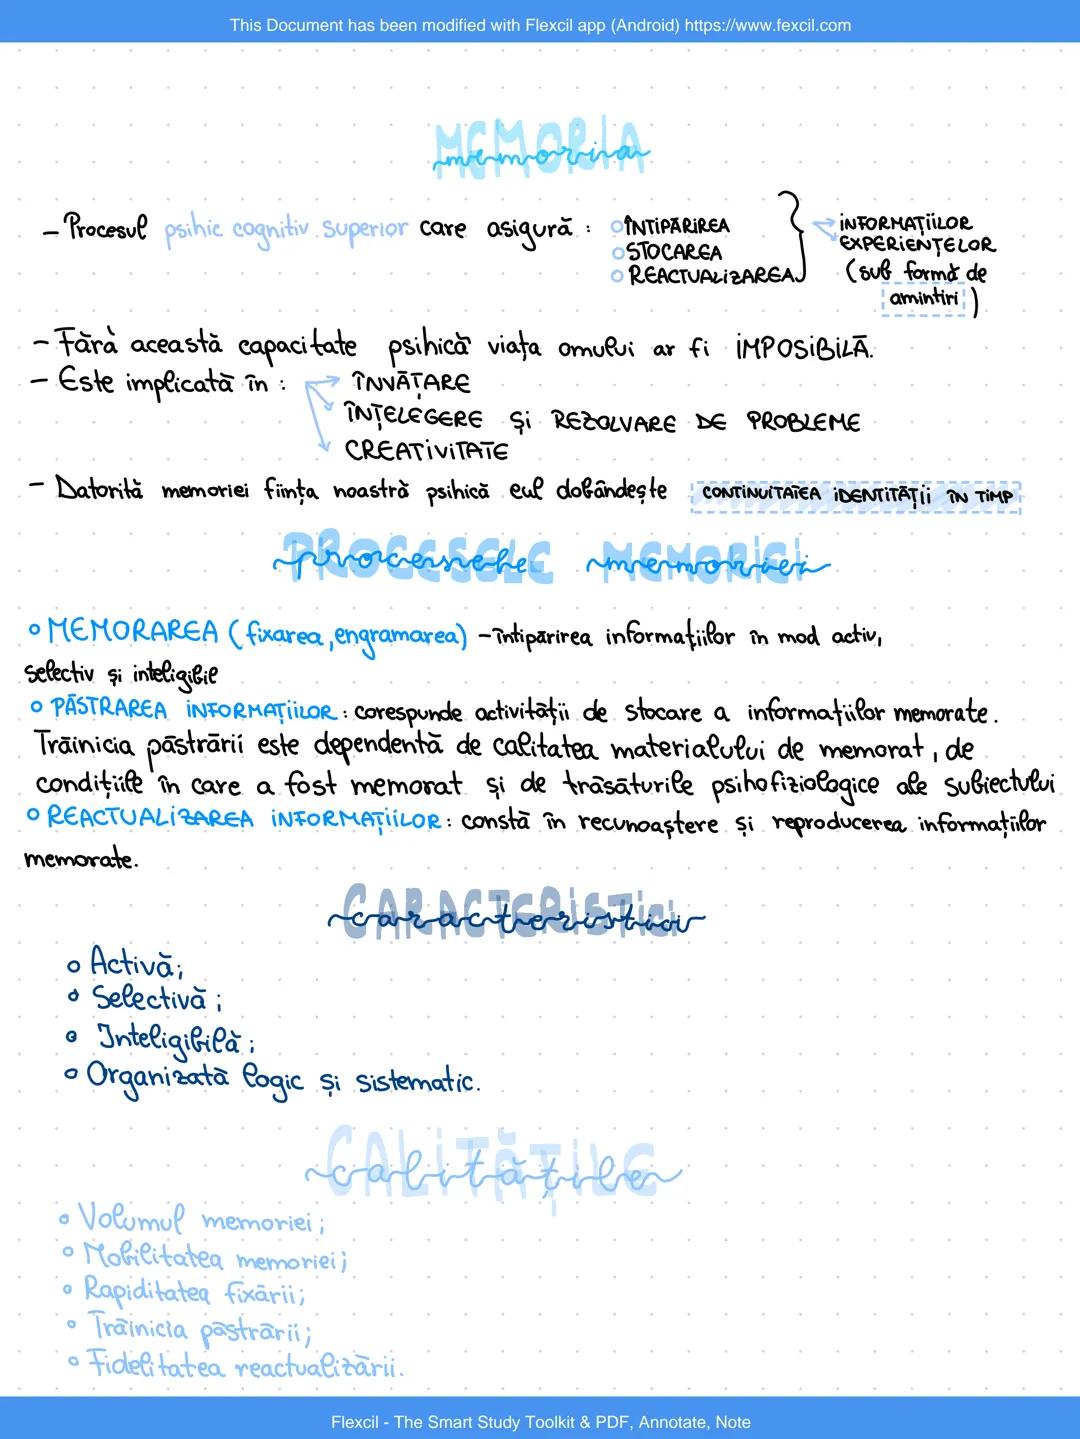 This Document has been modified with Flexcil app (Android) https://www.fexcil.com
MEMORIA
memoria
- Procesul psihic cognitiv superior care asigură : ÎNTIPĂRIREA
STOCAREA
REACTUALIZAREA
INFORMAȚIILOR
EXPERIENȚELOR
(sub formă de
amintiri)
- Fără această capacitate psihică viața omului ar fi IMPOSIBILĂ.
- Este implicată în : ÎNVĂȚARE
ÎNȚELEGERE și REZOLVARE DE PROBLEME
CREATIVITATE
- Datorită memoriei ființa noastră psihică eul dobândește CONTINUITATEA IDENTITĂȚII ÎN TIMP
PROCESELE MEMORIEI
procesele memoriei
MEMORAREA (fixarea, engramarea) - întipărirea informațiilor în mod activ,
selectiv și inteligibil
PĂSTRAREA INFORMAȚIILOR: corespunde activității de stocare a informațiilor memorate.
Trăinicia păstrării este dependentă de calitatea materialului de memorat, de
condițiile în care a fost memorat și de trăsăturile psihofiziologice ale subiectului
REACTUALIZAREA INFORMAȚIILOR: constă în recunoaștere și reproducerea informațiilor
memorate.
CARACTERISTICI
caracteristici
Activă;
Selectivă;
Inteligibilă;
Organizată logic și sistematic.
CALITĂȚILE
calitățile
Volumul memoriei;
Mobilitatea memoriei;
Rapiditatea fixării;
Trăinicia păstrării;
Fidelitatea reactualizării.
Flexcil - The Smart Study Toolkit & PDF, Annotate, Note